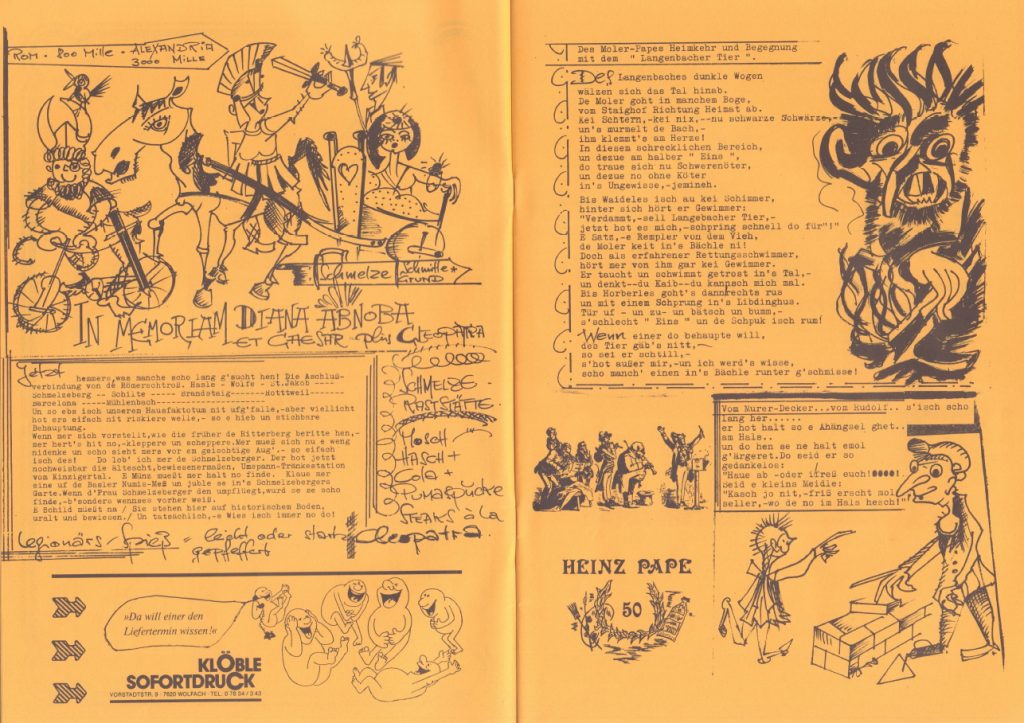 ROM - 800 Mille - ALEXANDRIA
3000 MILLE
Schmelze
Schmitte +
GRUND
IN MEMORIAM DIANA ABNOBA
ET CAESAR plus CLEOPATRA
Jetzt
hemmers,was manche scho lang g'sucht hen! Die Aschluß-
verbindung von de Römerschtroß. Hasle - Wolfe - St.Jakob ----
Schmelzeberg -- Schilte ----- Brandsteig------Rottweil-----
Barcelona -----Mühlenbach-------
Un so ebs isch unserem Hausfaktotum nit ufg'falle,-aber viellicht
hot ers eifach nit riskiere welle,- so e hieb un stichbare
Behauptung.
Wenn mer sich vorstellt,wie die früher de Ritterberg beritte hen,-
mer hert's hit no,-kleppere un scheppere.Wer mueß sich nu e weng
nidenke un scho sieht mers vor em geischtige Aug'.- so eifach
isch des! Do lob' ich mer de Schmelzeberger. Der hot jetzt
nochweisbar die Ältescht,bewiesenermaßen, Umspann-Tränkestation
vom Kinzigertal. E Münz mueßt mer halt no finde. Klaue mer
eine uf de Basler Numis-Meß un juble se in's Schmelzebergers
Garte.Wenn d'Frau Schmelzeberger den umpflüegt,wurd se se scho
finde,-b'sonders wenn
E Schild mueßt na / Sie stehen hier auf historischen Boden,
uralt und bewiesen./ Un tatsächlich,-e Wies isch immer no do!
SCHMELZE
RASTSTÄTTE
MOSCH-
HASCH+
COLA+
PUMASPUCKE
STEAKS à LA
Cleopatra.
Legionärs-Spieß = leicht oder stark
gepfeffert
»Da will einer den
Liefertermin wissen!«
KLÖBLE
SOFORTDRUCK
VORSTADTSTR. 9 · 7620 WOLFACH · TEL. 0 78 34 / 3 43
Des Moler-Papes Heimkehr und Begegnung
mit dem " Langenbacher Tier ".
Des Langenbaches dunkle Wogen
wälzen sich das Tal hinab.
De Moler goht in manchem Boge,
vom Staighof Richtung Heimat ab.
Kei Schtern,-kei nix,--nu schwarze Schwärze,-
un's murmelt de Bach,-
ihm klemmt's am Herze!
In diesem schrecklichen Bereich,
un dezue am halber " Eins ",
do traue sich nu Schwerenöter,
un dezue no ohne Köter
in's Ungewisse,-jemineh.
Bis Waideles isch au kei Schimmer,
hinter sich hört er Gewimmer:
"Verdammt,-sell Langebacher Tier,-
jetzt hot es mich,-schpring schnell do für"!"
E Satz,-e Rempler von dem Vieh,
de Moler keit in's Bächle ni!
Doch als erfahrener Rettungsschwimmer,
hört mer von ihm gar kei Gewimmer.
Er taucht un schwimmt getrost in's Tal,-
un denkt--du Kaib--du kannsch mich mal.
Bis Horberles goht's dannrechts rus
un mit einem Schprung in's Libdinghus.
Tür uf - un zu- un bätsch un bumm,-
s'schlecht " Eins " un de Schpuk isch rum!
Wenn einer do behaupte will,
des Tier gäb's nitt,-
so sei er schtill,-
s'hot außer mir,-un ich werd's wisse,
scho manch' einen in's Bächle runter g'schmisse!
HEINZ PAPE
50
Vom Nurer-Decker...vom Rudolf.. s'isch scho
lang her......
er hot halt so e Ahängsel ghet..
am Hals..
un do hen se ne halt emol
g'ärgeret.Do seid er so
gedankelos:
"Haue ab -oder ifreß euch!
Seid e kleins Meidle:
"Kasch jo nit,-friß erscht mol
seller,-wo de no im Hals hesch!"